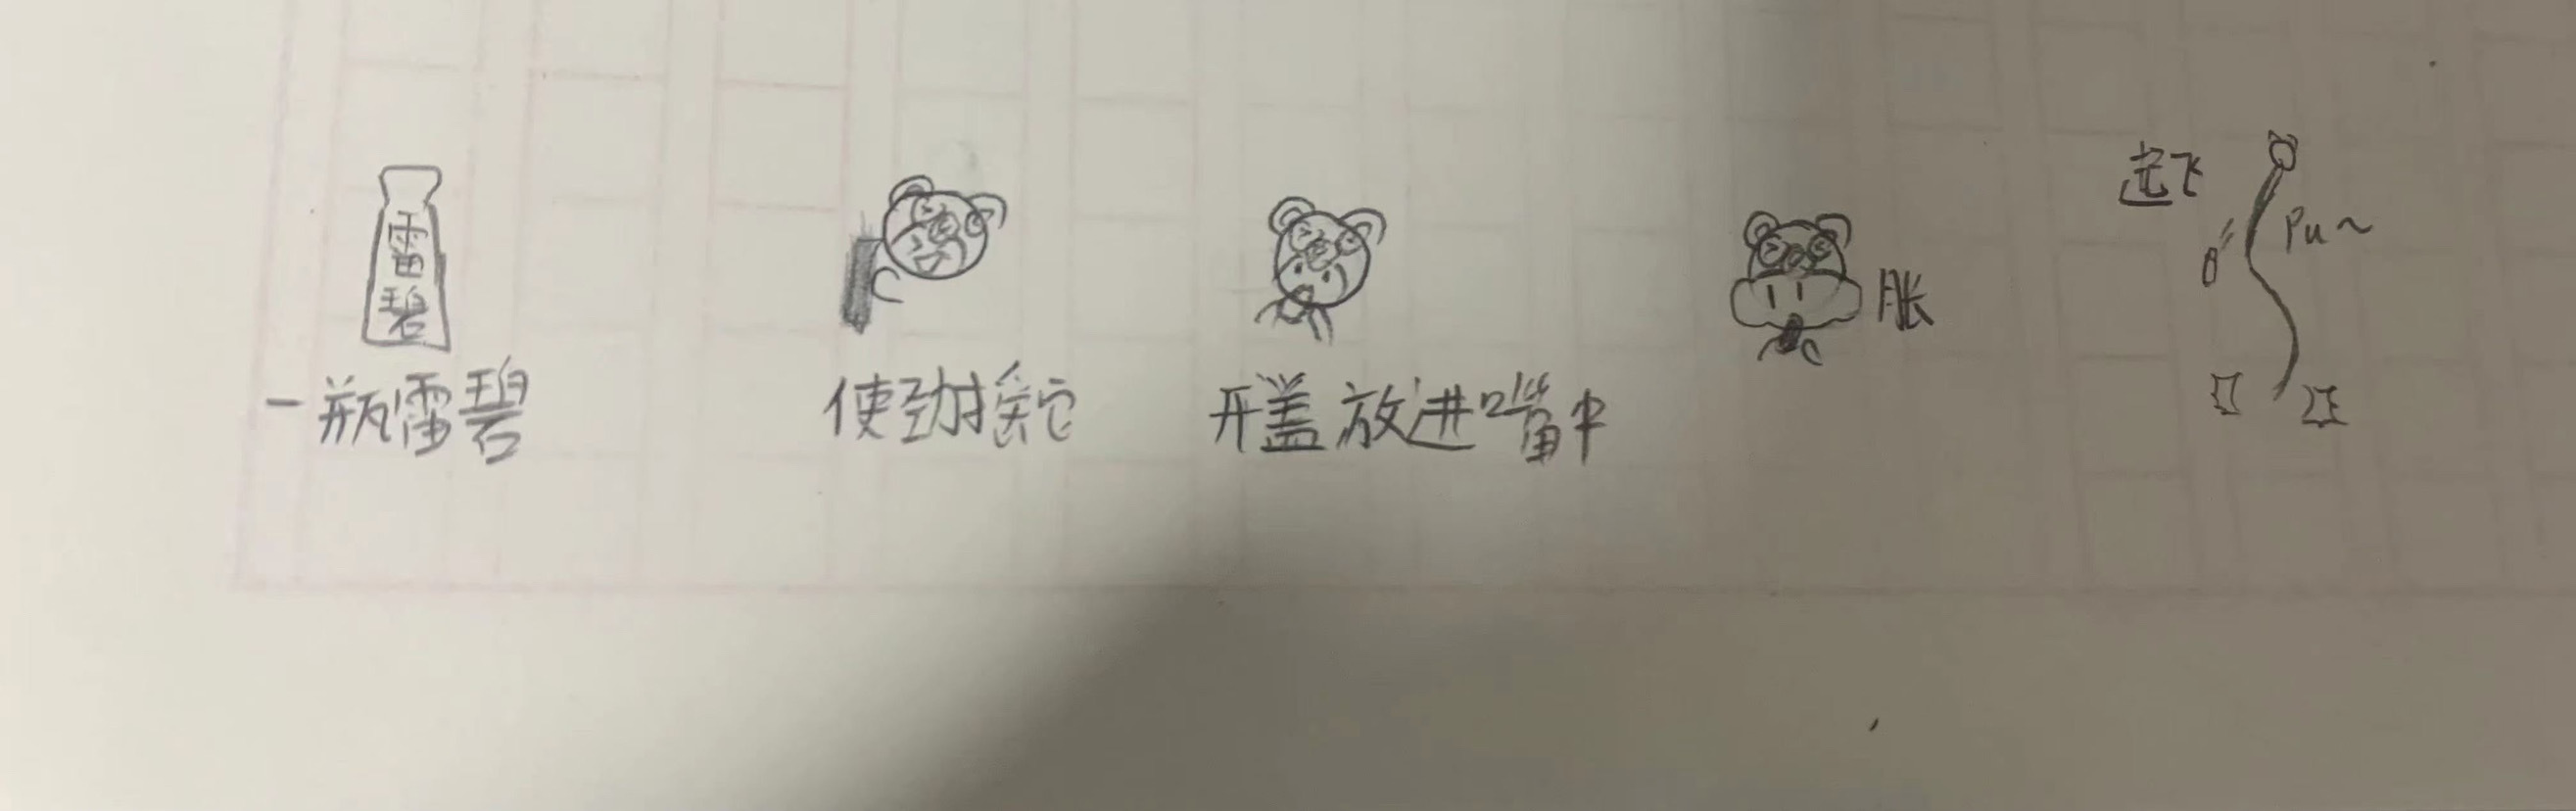 雷碧
一瓶雷碧
使劲摇它
开盖放进嘴中
胀
起飞
Pu~